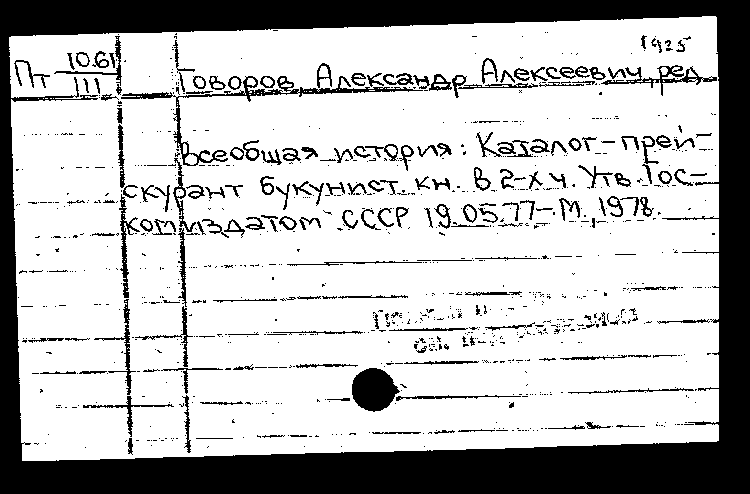 1925
Пт 10.61
III
Говоров, Александр Алексеевич, ред.
Всеобщая история: Каталог-прей-
скурант букунист. кн. В 2-х ч. Утв. Гос-
комиздатом СССР 19.05.77.-М., 1978.